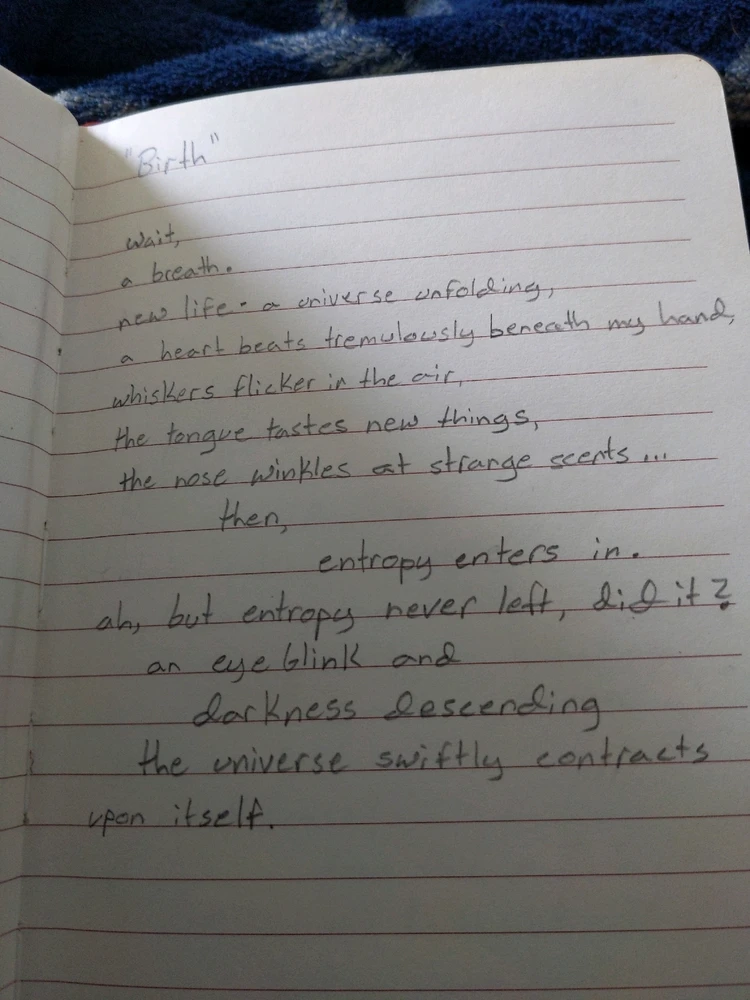 "Birth"
wait,
a breath.
new life - a universe unfolding,
a heart beats tremulously beneath my hand,
whiskers flicker in the air,
the tongue tastes new things,
the nose winkles at strange scents...
then,
entropy enters in.
ah, but entropy never left, did it?
an eye blink and
darkness descending
the universe swiftly contracts
upon itself.